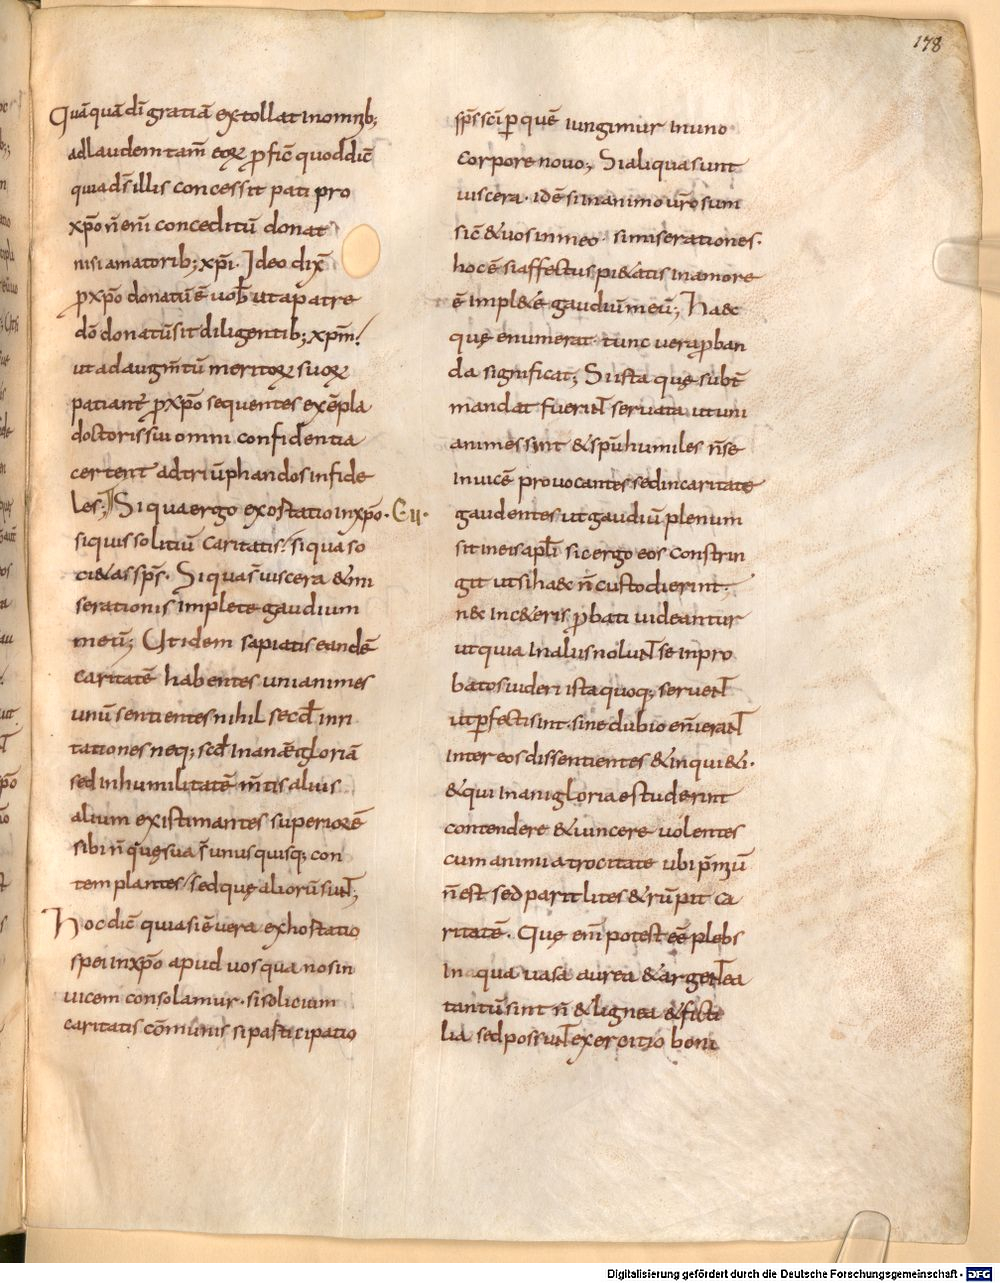 178
Quāquā dī gratiā extollat inomīb;
ad laudem tam̄ eoꝝ ꝓfic̄ quod dic̄
quia d̄s illis concessit pati pro
xp̄o n̄ enī conceditū donat
nisi amatorib; xp̄i. Ideo dix̄
ꝓ xp̄o donatū ē uob̄ ut a patre
dō donatū sit diligentib; xp̄m!
ut ad augm̄tū meritoꝝ suoꝝ
patiant̄ ꝓ xp̄o sequentes exēpla
doctoris sui omni confidentia
certent ad triūphandos infide
les; Si qua ergo exostatio in xp̄o. Eu.
si quis solitiū caritatis. si qua so
ci&as sp̄s. Si qua s̄ uiscera & mi
serationis implete gaudium
meū; Ut idem sapiatis eandē
caritatē habentes unianimes
unū sentientes nihil secd̄ inri
tationes neq; secd̄ inanē gloriā
sed in humilitatē m̄tis alius
alium existimantes superiorē
sibi n̄ quę sua s̄ unusquisq; con
templantes/ sed quę aliorū sunt;
Hoc dic̄ quia si ē uera exhostatio
spei in xp̄o apud uos qua nos in
uicem consolamur. si solicium
caritatis cōmunis si pasticipatio
sp̄s sc̄i ꝑ quē iungimur in uno
corpore nouo; Si aliqua sunt
uiscera. idē si in animo ur̄o sum
sic̄ & uos in meo. si miserationes.
hoc ē si affectus pi&atis in amore
ē impl&ē gaudiū meū; Haec
quę enumerat. tunc uera ꝓban
da significat; Si ista quę subt̄
mandat fuerint seruata ut uni
animes sint & sp̄u humiles n̄ se
inuicē prouocantes sed in caritate
gaudentes ut gaudiū plenum
sit in eis apl̄i. sic ergo eos constrin
git ut si haec n̄ custodierint.
nec in c&eris ꝓbati uideantur
ut quia in alus nolunt se inpro
batos uideri ista quoq; seruent
ut ꝑfecti sint. sine dubio enī erant
inter eos dissentientes & inqui&i.
& qui inani gloria estuderint
contendere & uincere uolentes
cum animi atrocitate ubi p̄mīū
n̄ est sed parit lites & rūpit ca
ritatē. Quę enī potest eē plebs
in qua uasa aurea & argentea
tantū sint n̄ & lignea & ficti
lia sed possunt exercitio boni
Digitalisierung gefördert durch die Deutsche Forschungsgemeinschaft - DFG